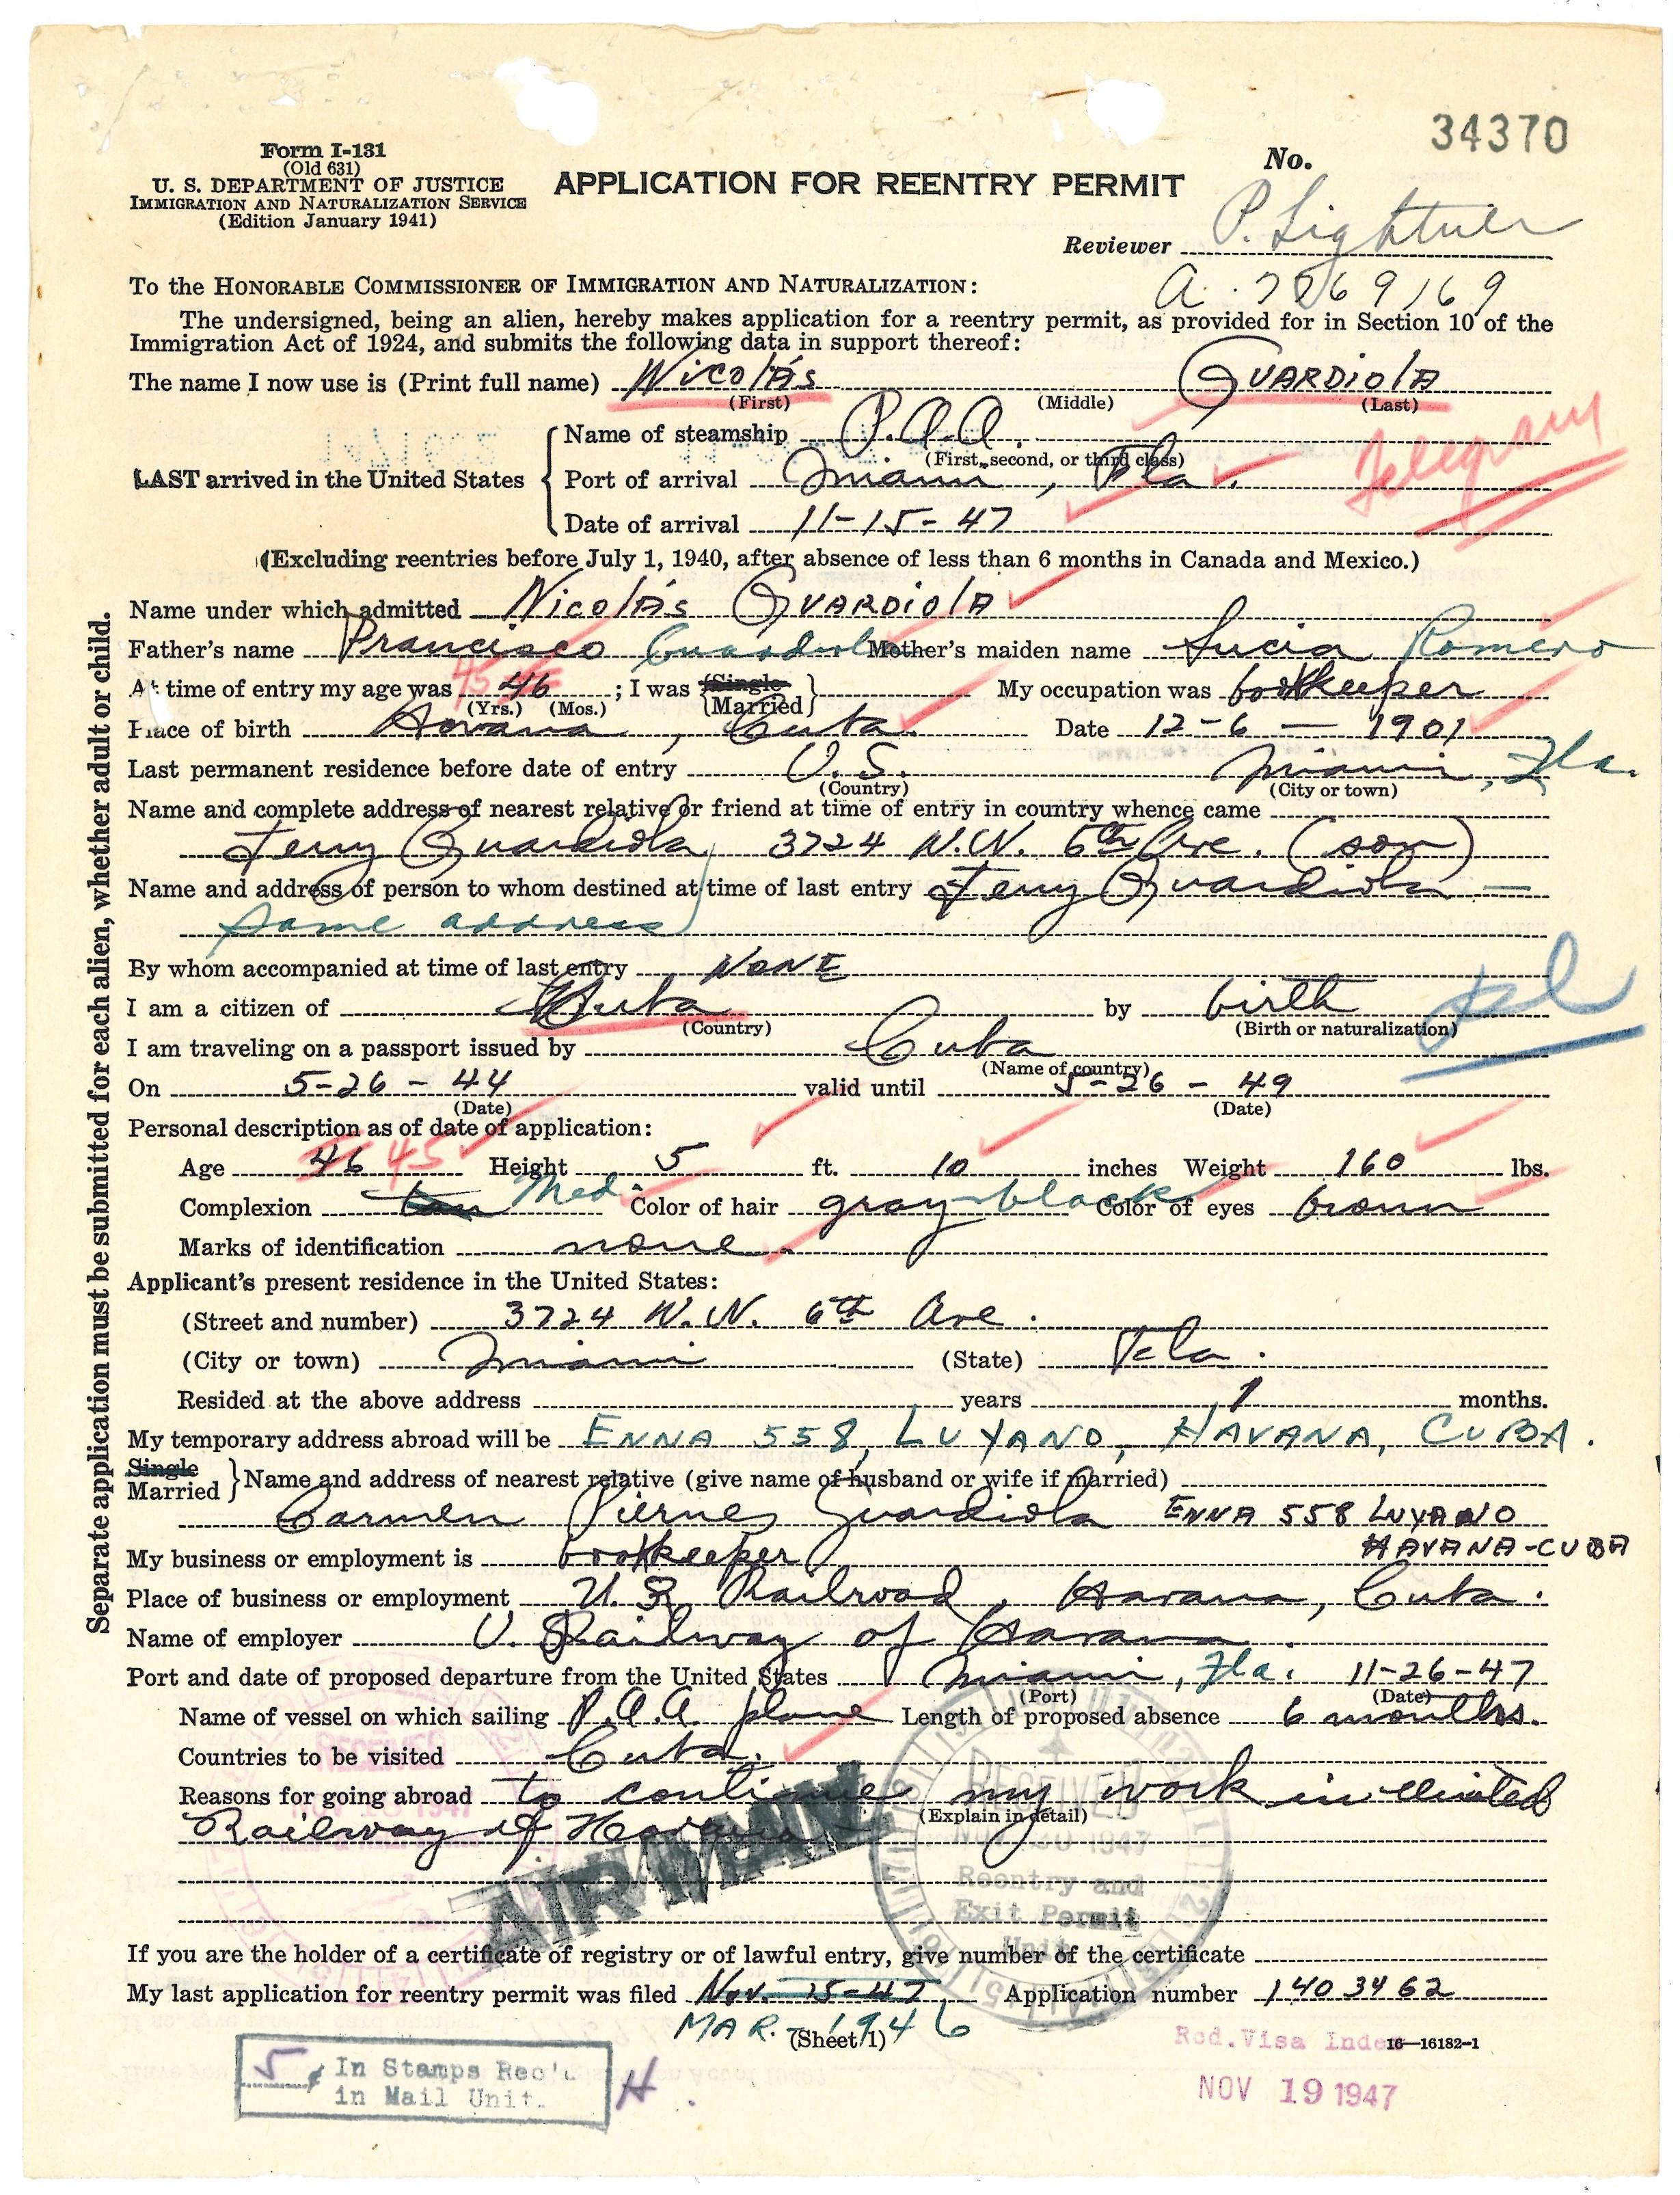 34370
Form I-131
(Old 631)
U. S. DEPARTMENT OF JUSTICE
IMMIGRATION AND NATURALIZATION SERVICE
(Edition January 1941)
APPLICATION FOR REENTRY PERMIT
No.
Reviewer P. Lightner
To the HONORABLE COMMISSIONER OF IMMIGRATION AND NATURALIZATION:
The undersigned, being an alien, hereby makes application for a reentry permit, as provided for in Section 10 of the
Immigration Act of 1924, and submits the following data in support thereof:
The name I now use is (Print full name) Nicolás GUARDIOLA
(First) (Middle) (Last)
Telegram
Name of steamship P.A.A.
(First, second, or third class)
LAST arrived in the United States
Port of arrival Miami, Fla.
Date of arrival 11-15-47
(Excluding reentries before July 1, 1940, after absence of less than 6 months in Canada and Mexico.)
Name under which admitted Nicolás GUARDIOLA
Father's name Francisco Guardiola Mother's maiden name Lucia Romero
At time of entry my age was 45 46; I was Single Married My occupation was bookkeeper
(Yrs.) (Mos.)
Place of birth Havana, Cuba. Date 12-6-1901
Last permanent residence before date of entry U.S. Miami, Fla.
(Country) (City or town)
Name and complete address of nearest relative or friend at time of entry in country whence came
Guardiola 3724 N.W. 6th Ave. (son)
Name and address of person to whom destined at time of last entry Guardiola —
same address
By whom accompanied at time of last entry NONE
I am a citizen of Cuba by birth
(Country) (Birth or naturalization)
I am traveling on a passport issued by Cuba
(Name of country)
On 5-26-44 valid until 5-26-49
(Date) (Date)
Personal description as of date of application:
Age 46 45 Height 5 ft. 10 inches Weight 160 lbs.
Complexion Med. Color of hair gray-black Color of eyes brown
Marks of identification none
Applicant's present residence in the United States:
(Street and number) 3724 N.W. 6th Ave.
(City or town) Miami (State) Fla.
Resided at the above address years 1 months.
My temporary address abroad will be ENNA 558, LUYANO, HAVANA, CUBA.
Single
Married Name and address of nearest relative (give name of husband or wife if married)
Carmen Guardiola ENNA 558 LUYANO
HAVANA-CUBA
My business or employment is bookkeeper
Place of business or employment Railroad, Havana, Cuba.
Name of employer U. Railway of Havana.
Port and date of proposed departure from the United States Miami, Fla. 11-26-47
(Port) (Date)
Name of vessel on which sailing P.A.A. plane Length of proposed absence 6 months.
Countries to be visited Cuba.
Reasons for going abroad to continue my work in United
(Explain in detail)
Railway of Havana
RECEIVED
NOV 18 1947
AIR MAIL
RECEIVED
1947
Reentry and
Exit Permit
Unit
If you are the holder of a certificate of registry or of lawful entry, give number of the certificate
My last application for reentry permit was filed Nov. 15-47 Application number 1403462
MAR. - 1946
(Sheet 1)
16—16182-1
Rod. Visa Index
NOV 19 1947
5 ¢ In Stamps Rec'd
in Mail Unit.
H.
Separate application must be submitted for each alien, whether adult or child.